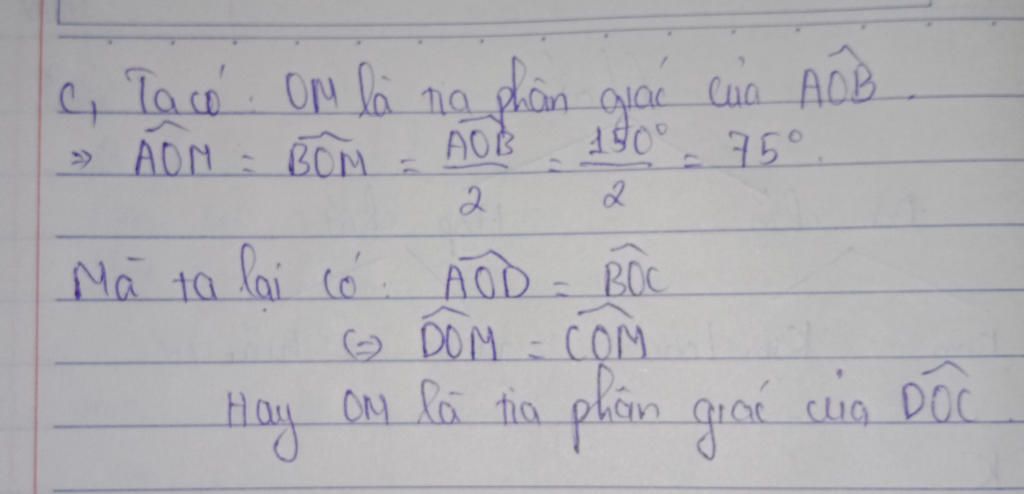 c, Ta có: OM là tia phân giác của $\widehat{AOB}$.
=> $\widehat{AOM}$ = $\widehat{BOM}$ = $\frac{\widehat{AOB}}{2}$ = $\frac{150°}{2}$ = 75°.
Mà ta lại có: $\widehat{AOD}$ = $\widehat{BOC}$
<=> $\widehat{DOM}$ = $\widehat{COM}$
Hay OM là tia phân giác của $\widehat{DOC}$.